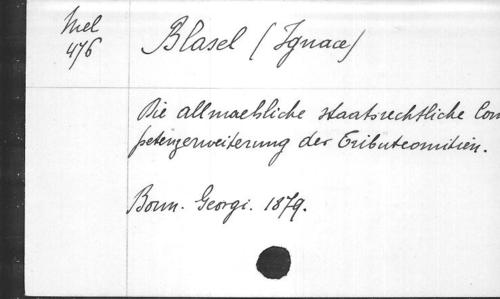 Mel
476
Blasel (Ignace)
Die allmaehliche staatsrechtliche Com
petenzerweiterung der Tributcomitien.
Bonn. Georgi. 1879.